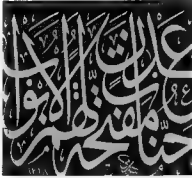 جنات عدن مفتحة لهم الابواب